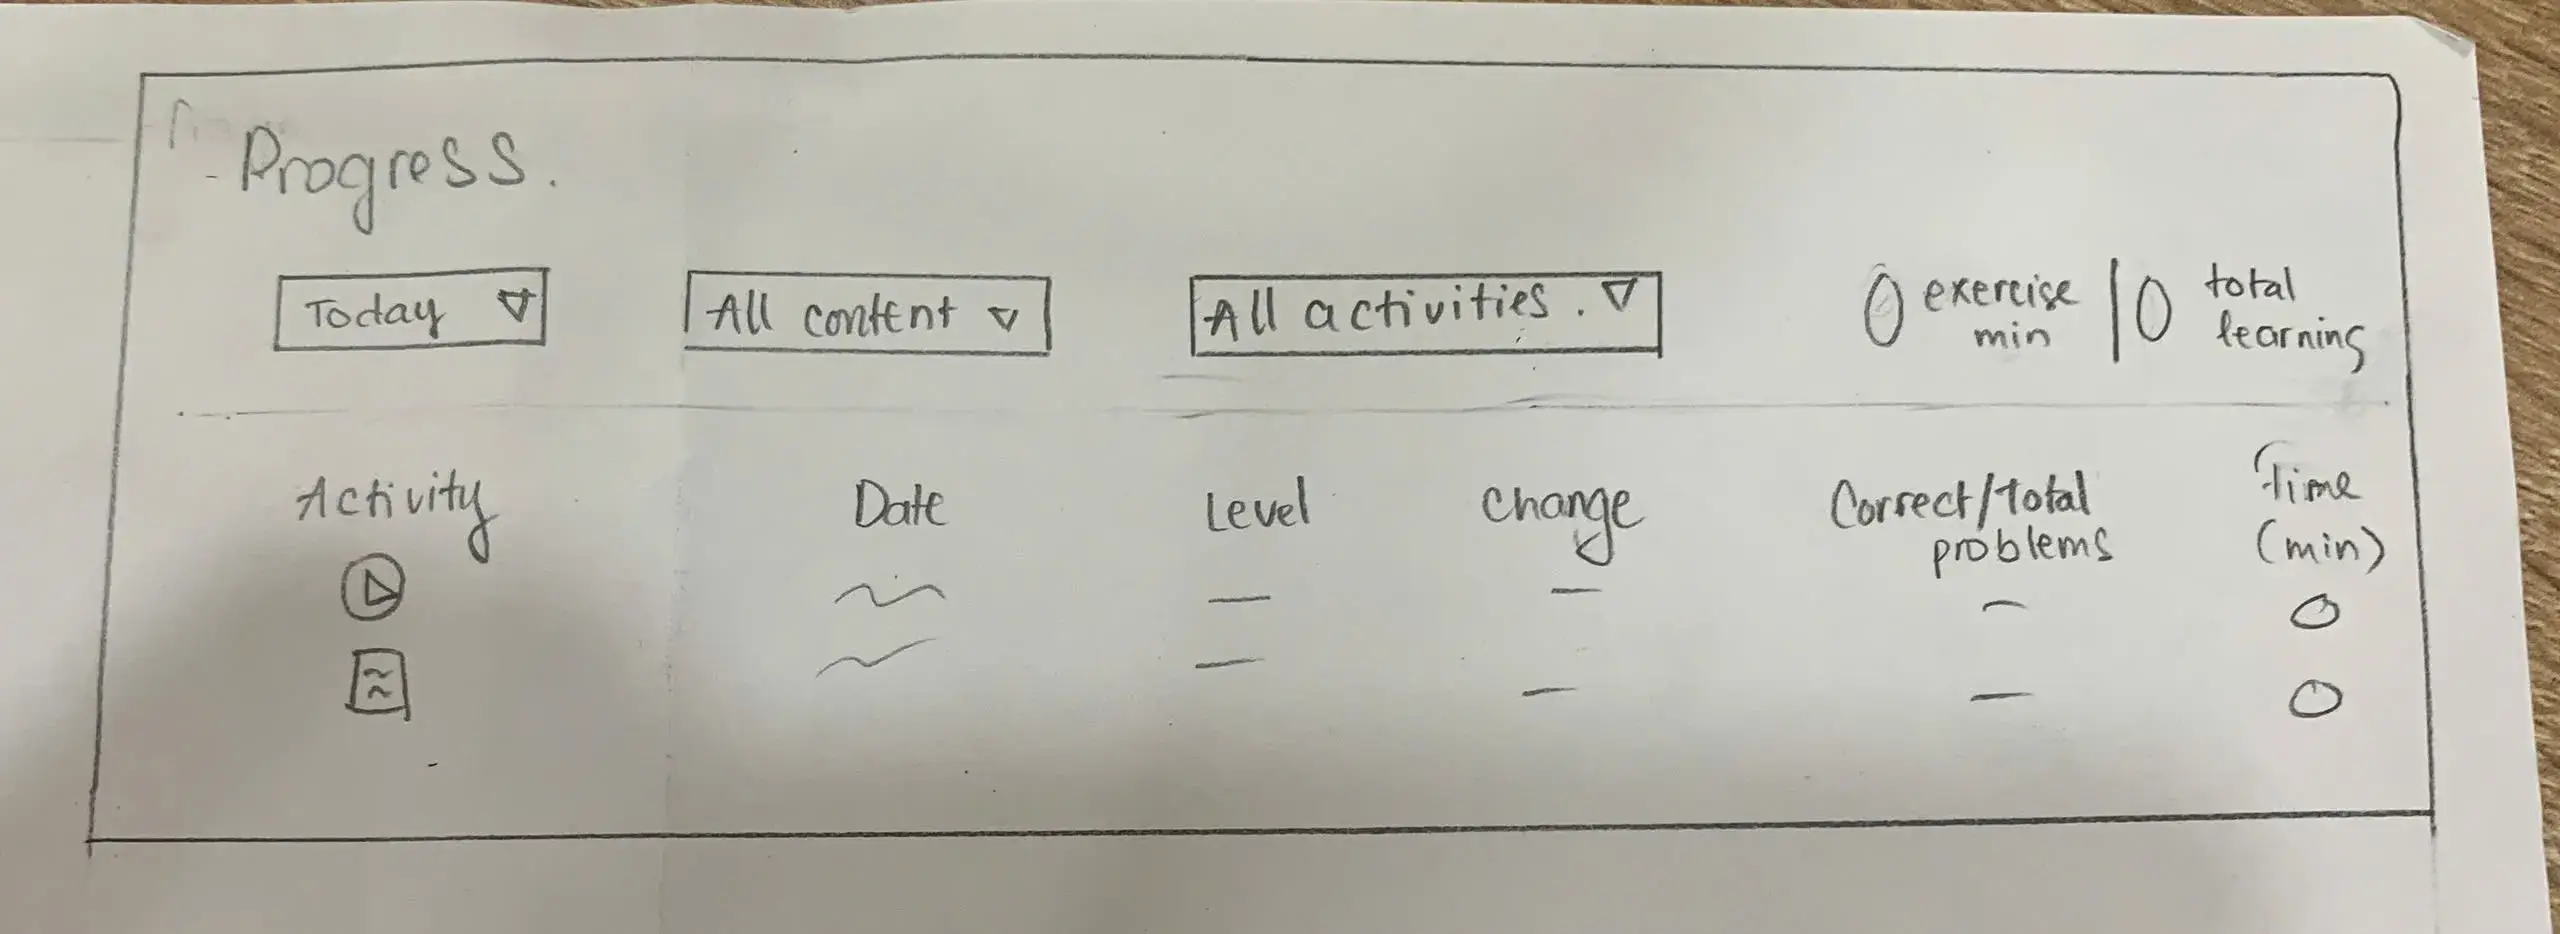 Progress.
Today
All content
All activities.
0 exercise min | 0 total learning
Activity
Date
Level
Change
Correct/total problems
Time (min)
—
—
—
0
—
—
—
0